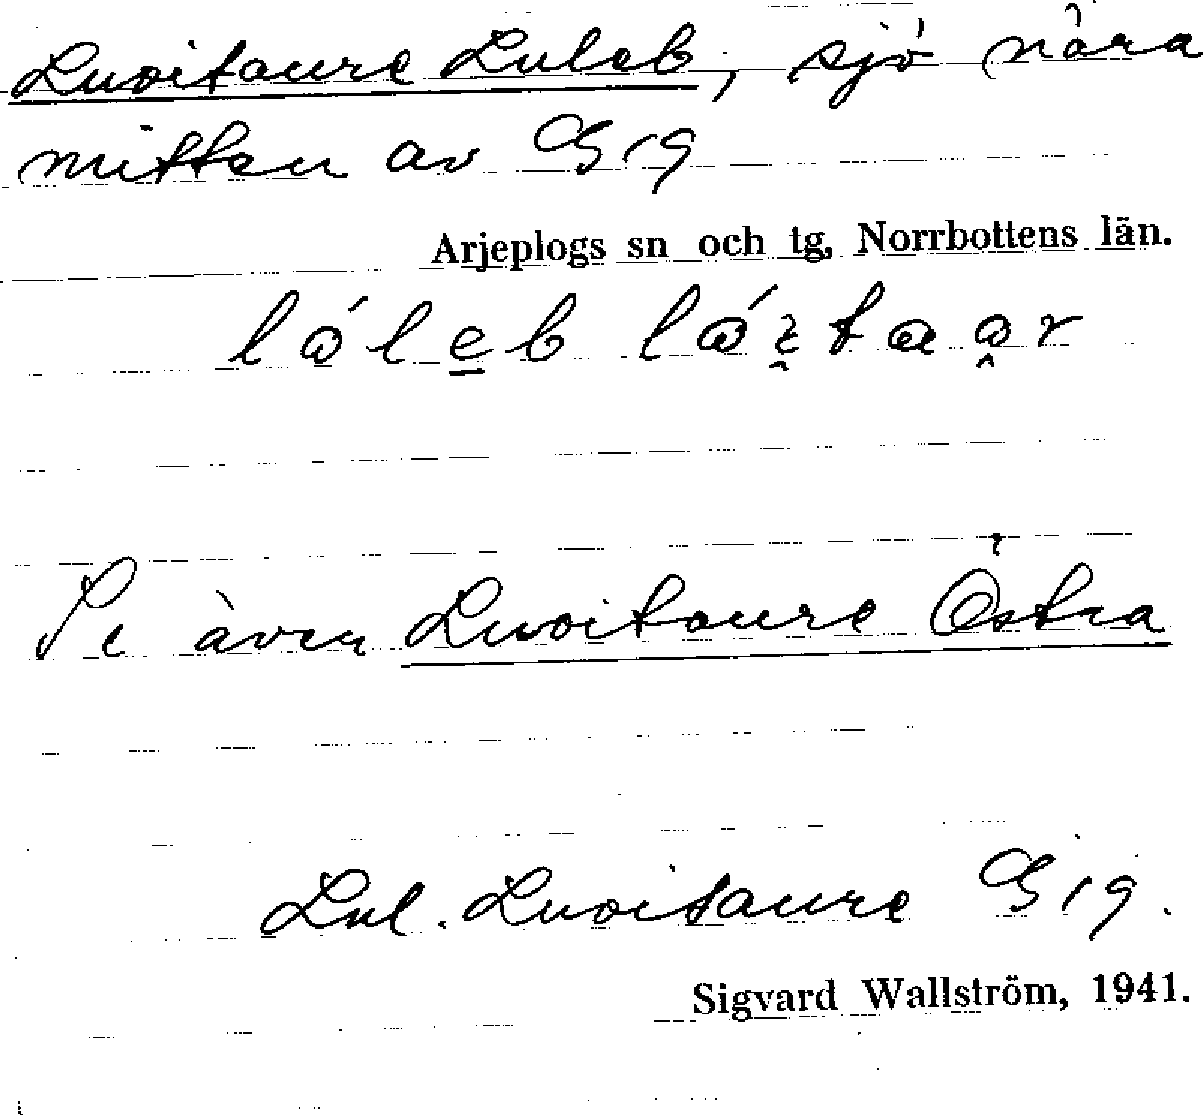 Luoitaure Luleb, sjö nära
mitten av G 19
Arjeplogs sn och tg, Norrbottens län.
Se även Luoitaure Östra
Lul. Luoitaure G 19.
Sigvard Wallström, 1941.